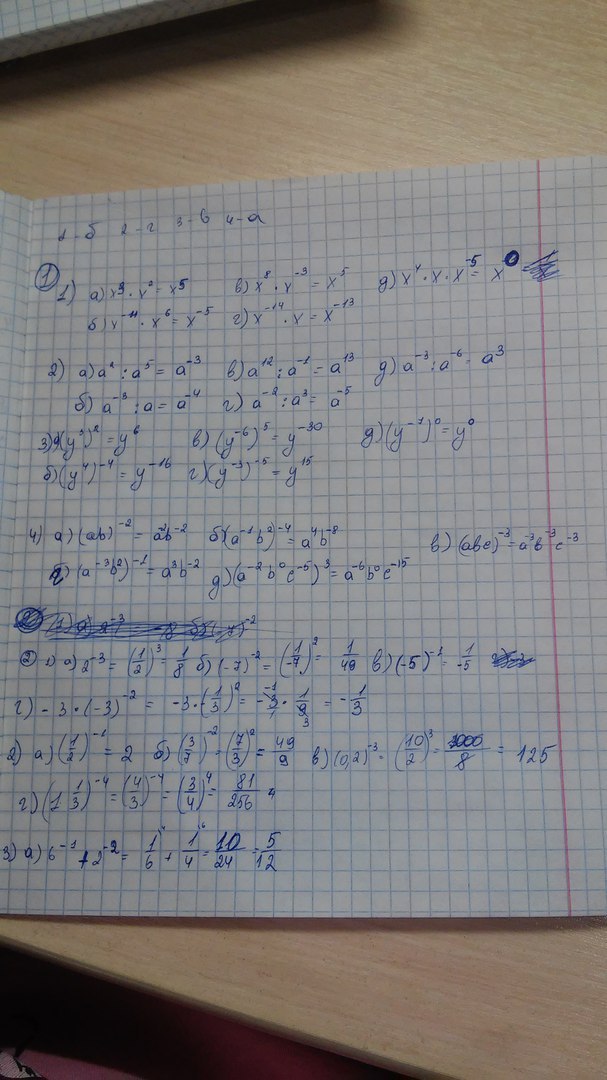 1-б 2-г 3-в 4-а
① 1) а) x³ · x² = x⁵ в) x⁸ · x⁻³ = x⁵ д) x⁴ · x · x⁻⁵ = x⁰
б) x⁻¹¹ · x⁶ = x⁻⁵ г) x⁻¹⁴ · x = x⁻¹³
2) а) a² : a⁵ = a⁻³ в) a¹² : a⁻¹ = a¹³ д) a⁻³ : a⁻⁶ = a³
б) a⁻³ : a = a⁻⁴ г) a⁻² : a³ = a⁻⁵
3) а) (y³)² = y⁶ в) (y⁻⁶)⁵ = y⁻³⁰ д) (y⁻⁷)⁰ = y⁰
б) (y⁴)⁻⁴ = y⁻¹⁶ г) (y⁻³)⁻⁵ = y¹⁵
4) а) (ab)⁻² = a⁻²b⁻² б) (a⁻¹b²)⁻⁴ = a⁴b⁻⁸ в) (abc)⁻³ = a⁻³b⁻³c⁻³
г) (a⁻³b²)⁻¹ = a³b⁻² д) (a⁻²b⁰c⁻⁵)³ = a⁻⁶b⁰c⁻¹⁵
② 1) а) 2⁻³ = (1/2)³ = 1/8 б) (-7)⁻² = (1/-7)² = 1/49 в) (-5)⁻¹ = 1/-5
г) -3 · (-3)⁻² = -3 · (-1/3)² = -3 · 1/9 = -1/3
2) а) (1/2)⁻¹ = 2 б) (3/7)⁻² = (7/3)² = 49/9 в) (0,2)⁻³ = (10/2)³ = 1000/8 = 125
г) (1 1/3)⁻⁴ = (4/3)⁻⁴ = (3/4)⁴ = 81/256
3) а) 6⁻¹ + 2⁻² = 1/6 + 1/4 = 10/24 = 5/12